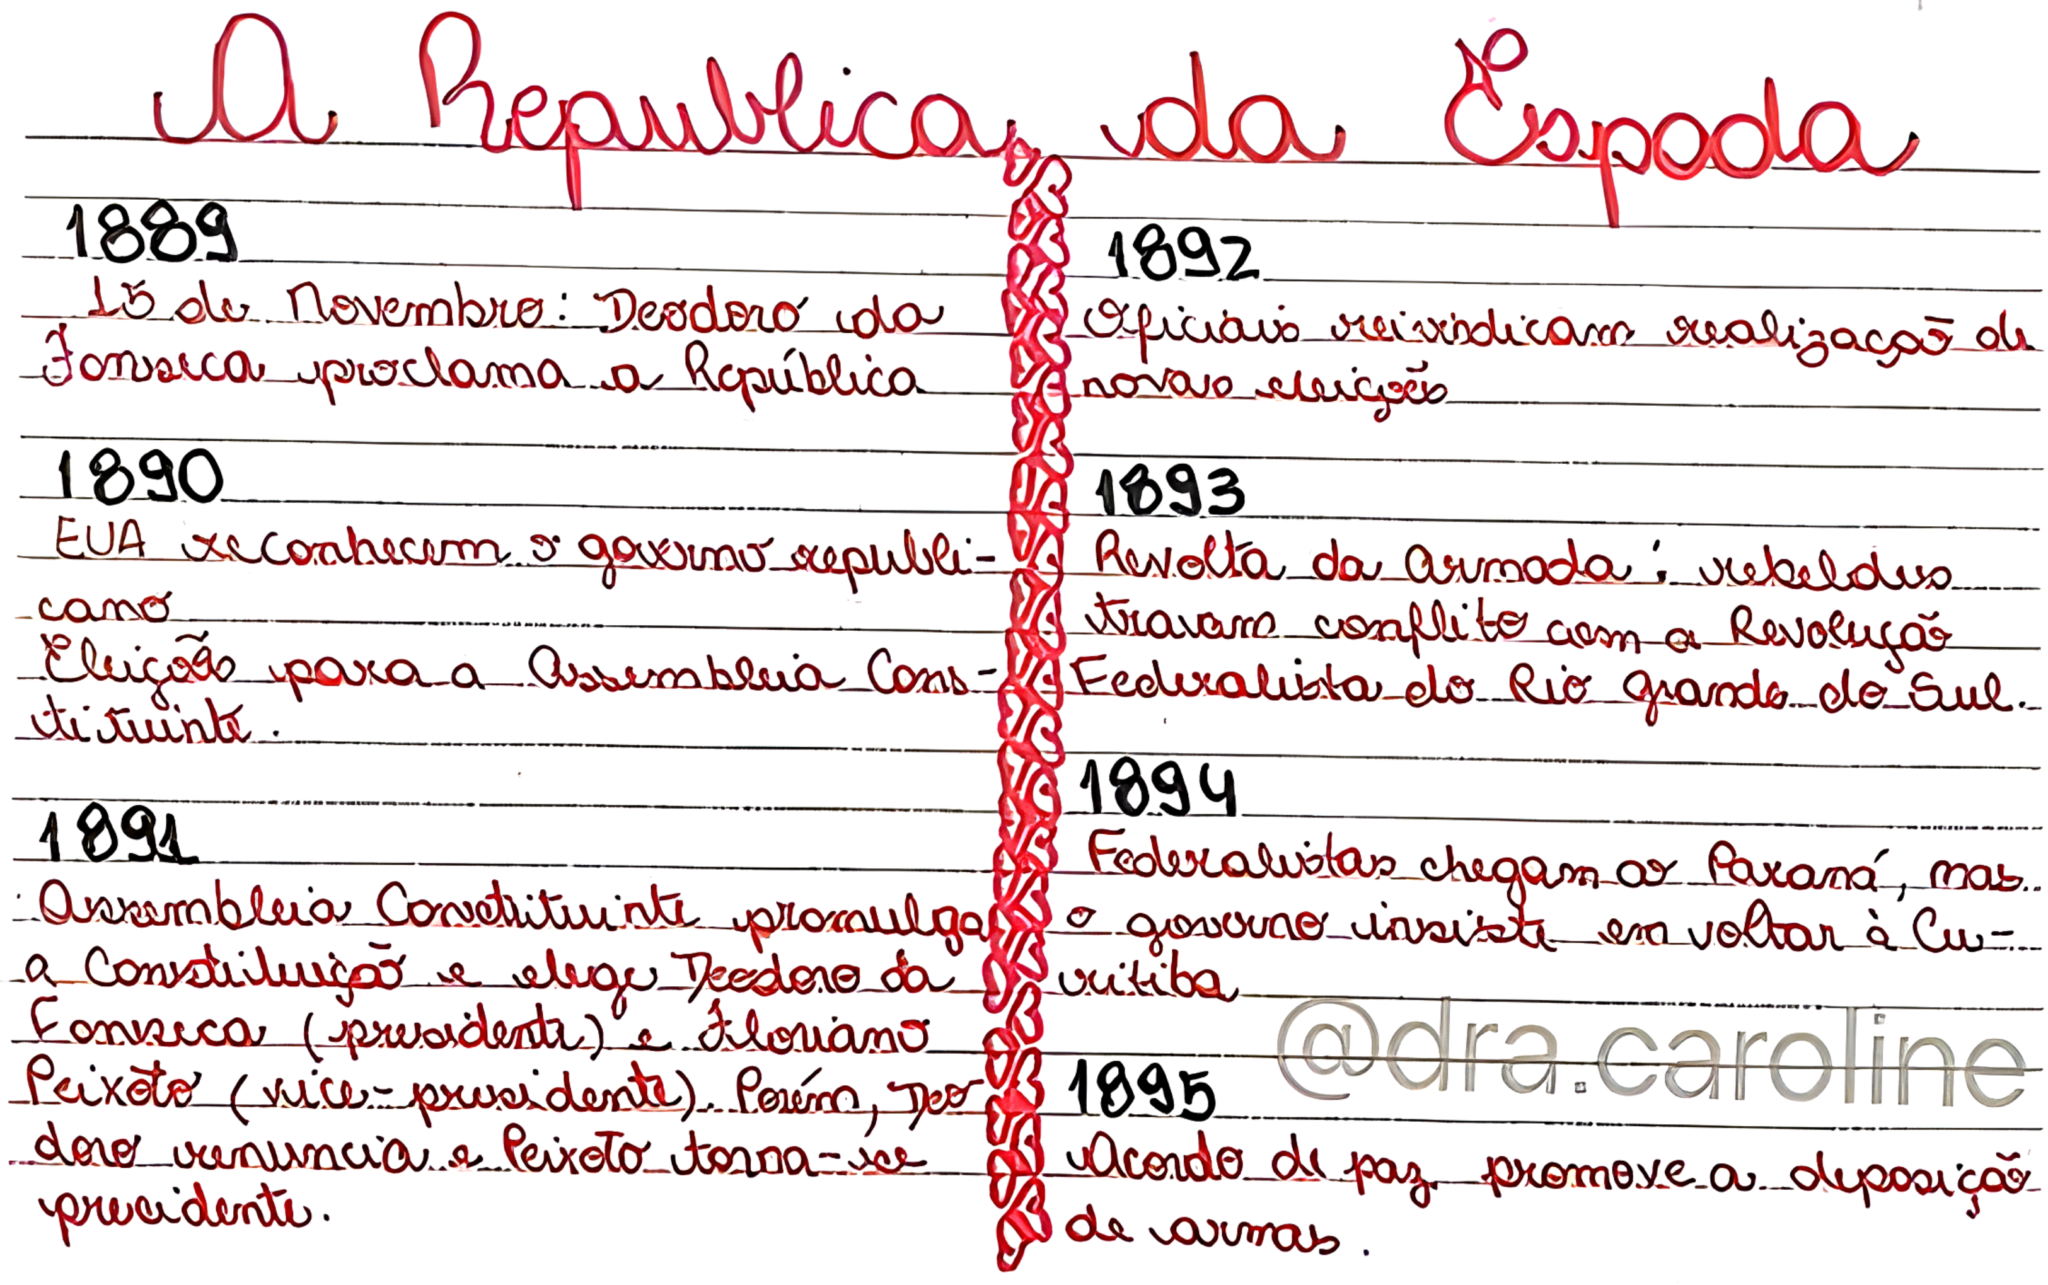 A Republica da Espada
1889
15 de Novembro: Deodoro da
Fonseca proclama a República
1890
EUA reconhecem o governo republi-
cano
Eleição para a Assembleia Cons-
tituinte.
1891
Assembleia Constituinte promulga
a Constituição e elege Deodoro da
Fonseca (presidente) e Floriano
Peixoto (vice-presidente). Porém, Deo
doro renuncia e Peixoto torna-se
presidente.
1892
Oficiais reivindicam realização de
novas eleições
1893
Revolta da Armada: rebeldes
travam conflito com a Revolução
Federalista do Rio Grande do Sul.
1894
Federalistas chegam ao Paraná, mas
o governo insiste em voltar à Cu-
ritiba
@dra.caroline
1895
Acordo de paz promove a deposição
de armas.